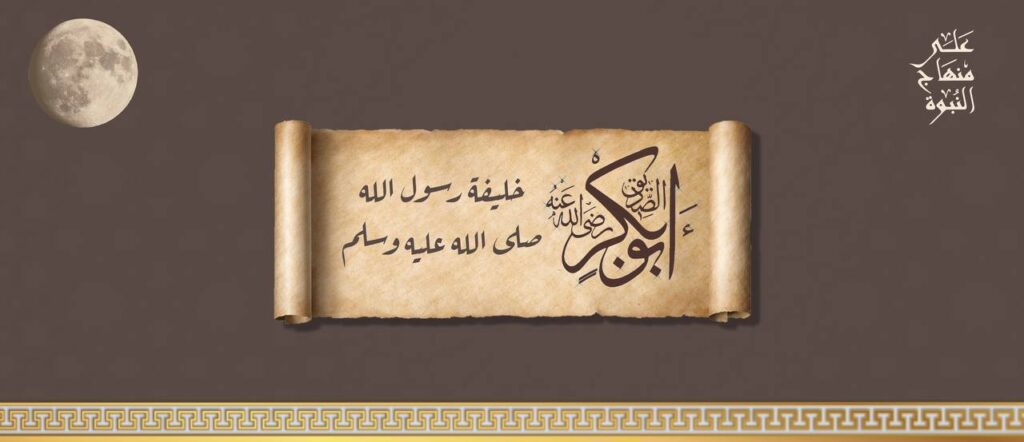 على
منهاج
النبوة
أبو بكر الصديق رضي الله عنه
خليفة رسول الله
صلى الله عليه وسلم